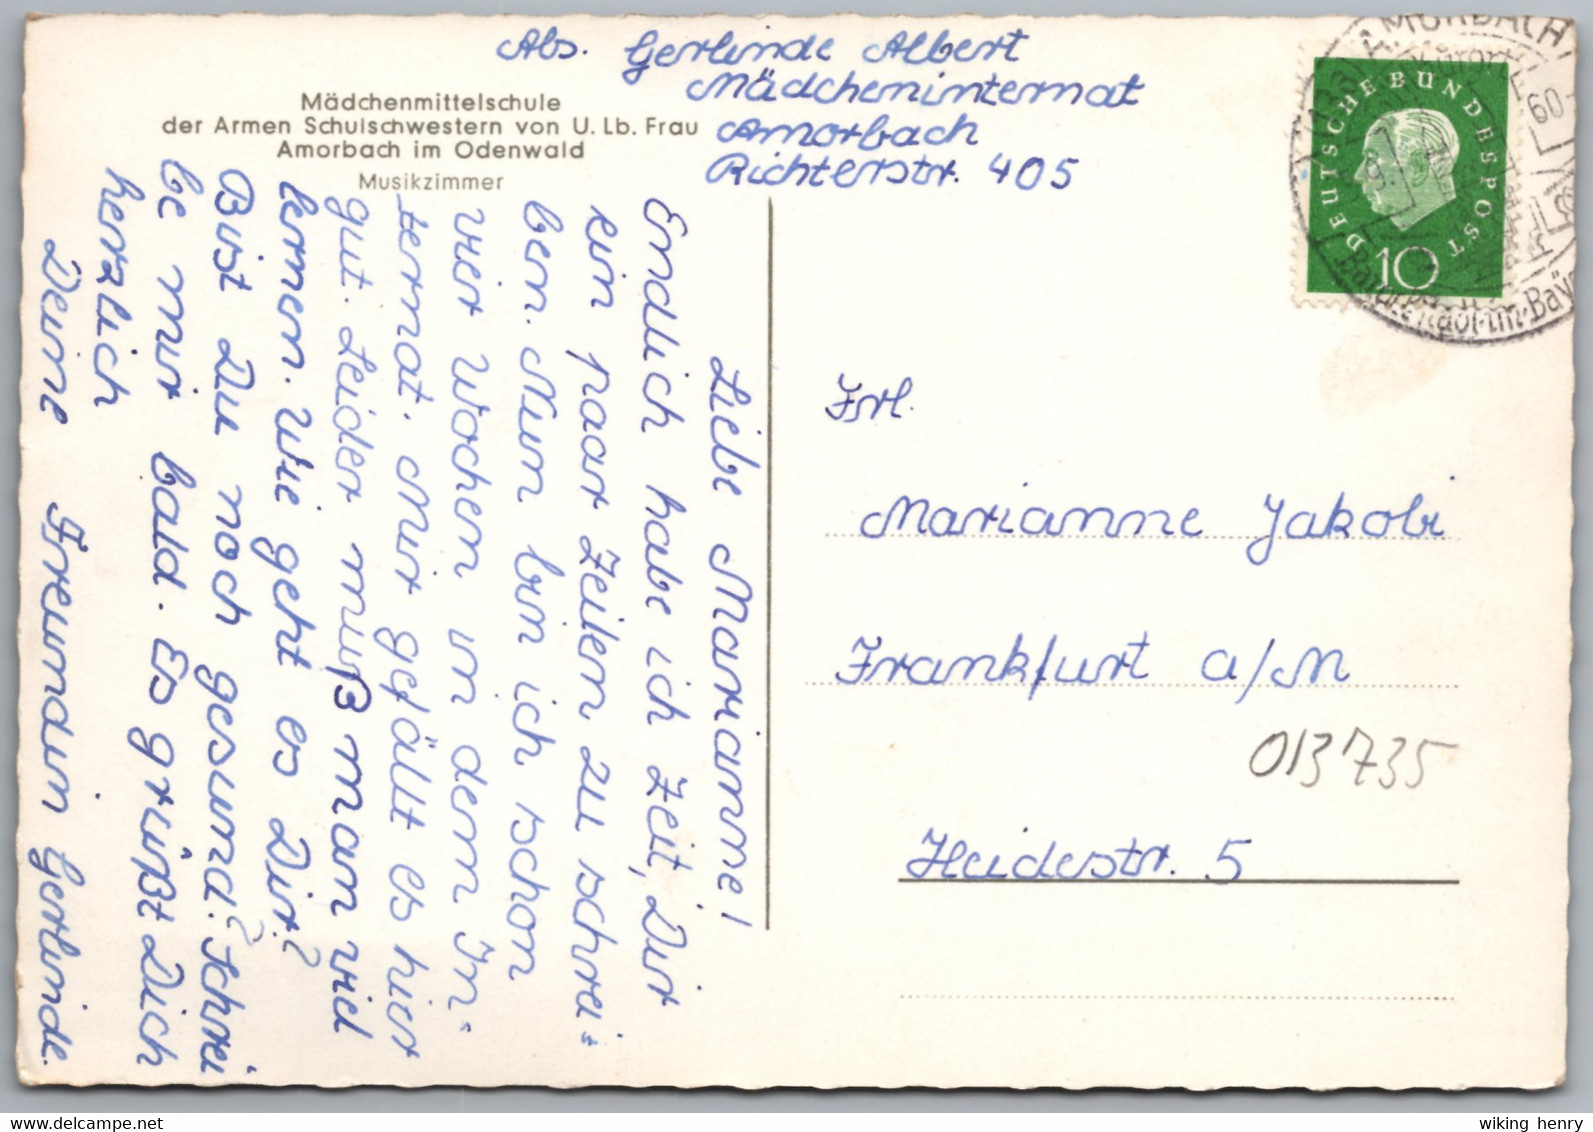 Abs. Gerlinde Albert
Mädcheninternat
Amorbach
Richterstr. 405
Mädchenmittelschule
der Armen Schulschwestern von U. Lb. Frau
Amorbach im Odenwald
Musikzimmer
Liebe Marianne!
Endlich habe ich Zeit, Dir
ein paar Zeilen zu schrei=
ben. Nun bin ich schon
vier Wochen in dem In=
ternat. Mir gefällt es hier
gut. Leider muß man viel
lernen. Wie geht es Dir?
Bist Du noch gesund? Schrei
be mir bald. Es grüßt Dich
herzlich
Deine Freundin Gerlinde.
AMORBACH
60
DEUTSCHE BUNDESPOST
10
Frl.
Marianne Jakobi
Frankfurt a/M
013735
Heidestr. 5
wiking henry